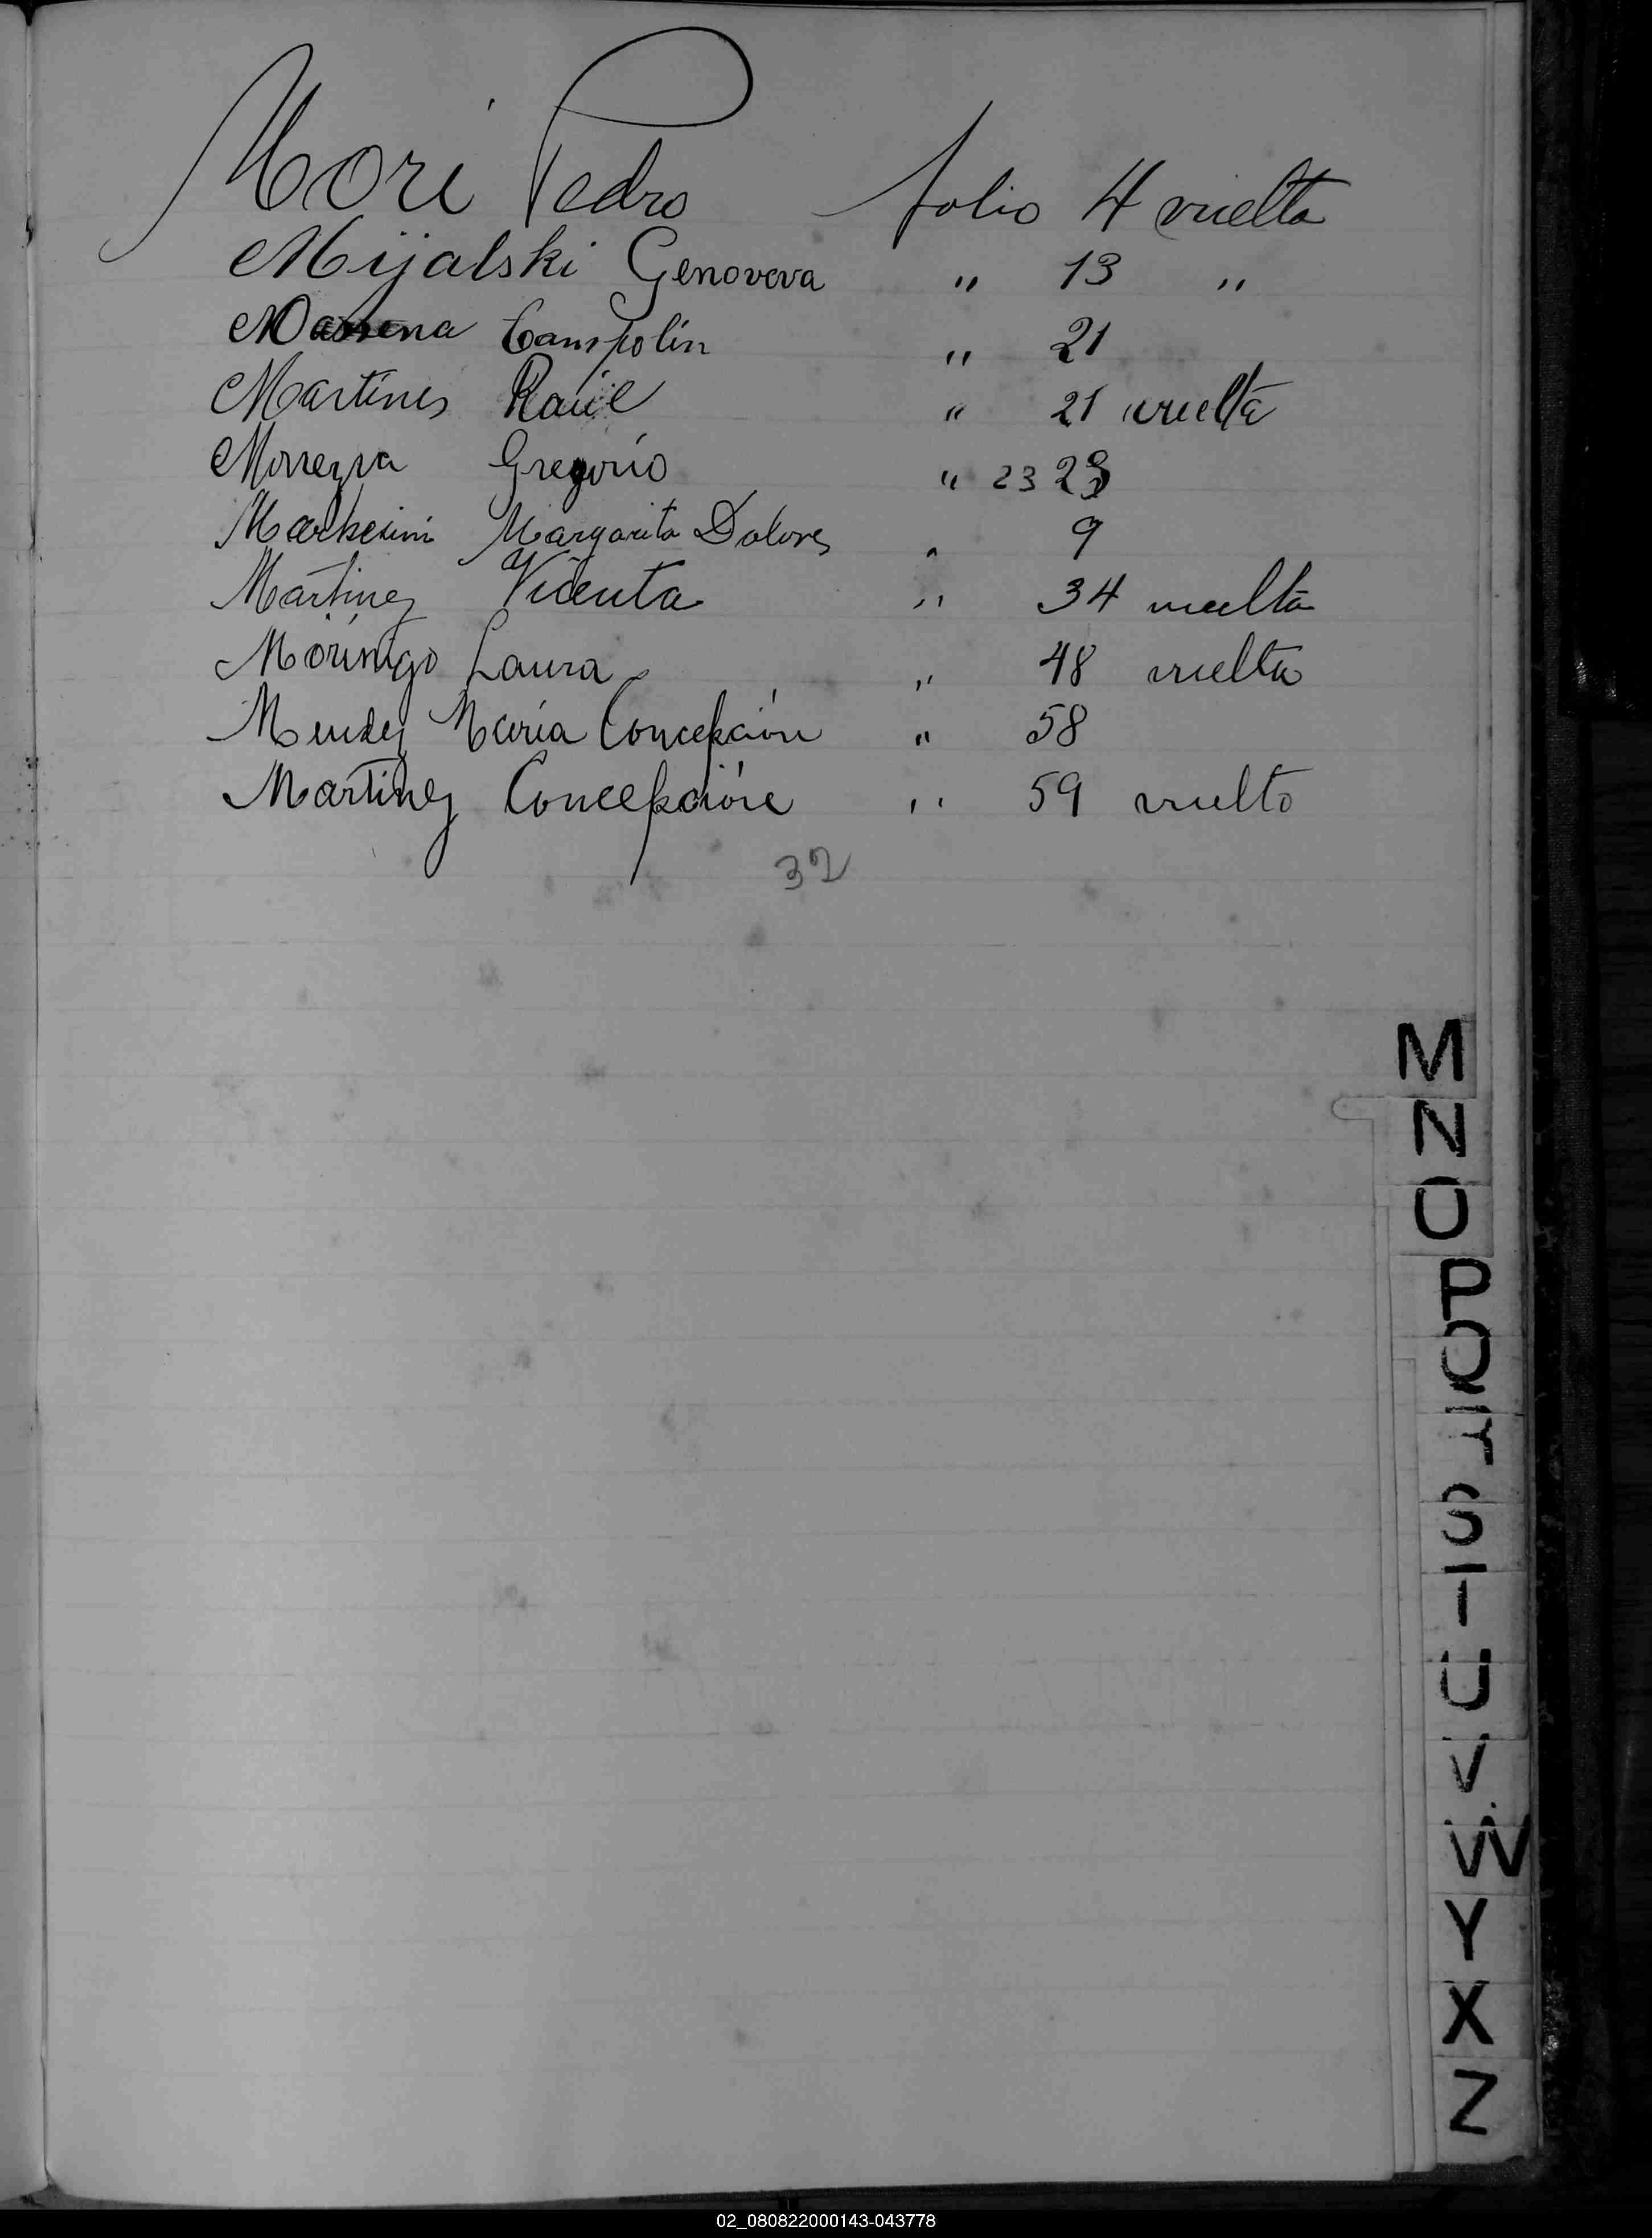 Mori Pedro folio 4 vuelta
Mijalski Genoveva " 13 "
Campolin " 21
Martines Raúl " 21 vuelta
Gregorio " 23 23
Margarita Dolores " 9
Martinez Vicenta " 34 vuelta
Morinigo Laura " 48 vuelta
Mendez María Concepción " 58
Martinez Concepción " 59 vuelto
32
M
N
O
P
Q
R
S
T
U
V
W
Y
X
Z
02_080822000143-043778